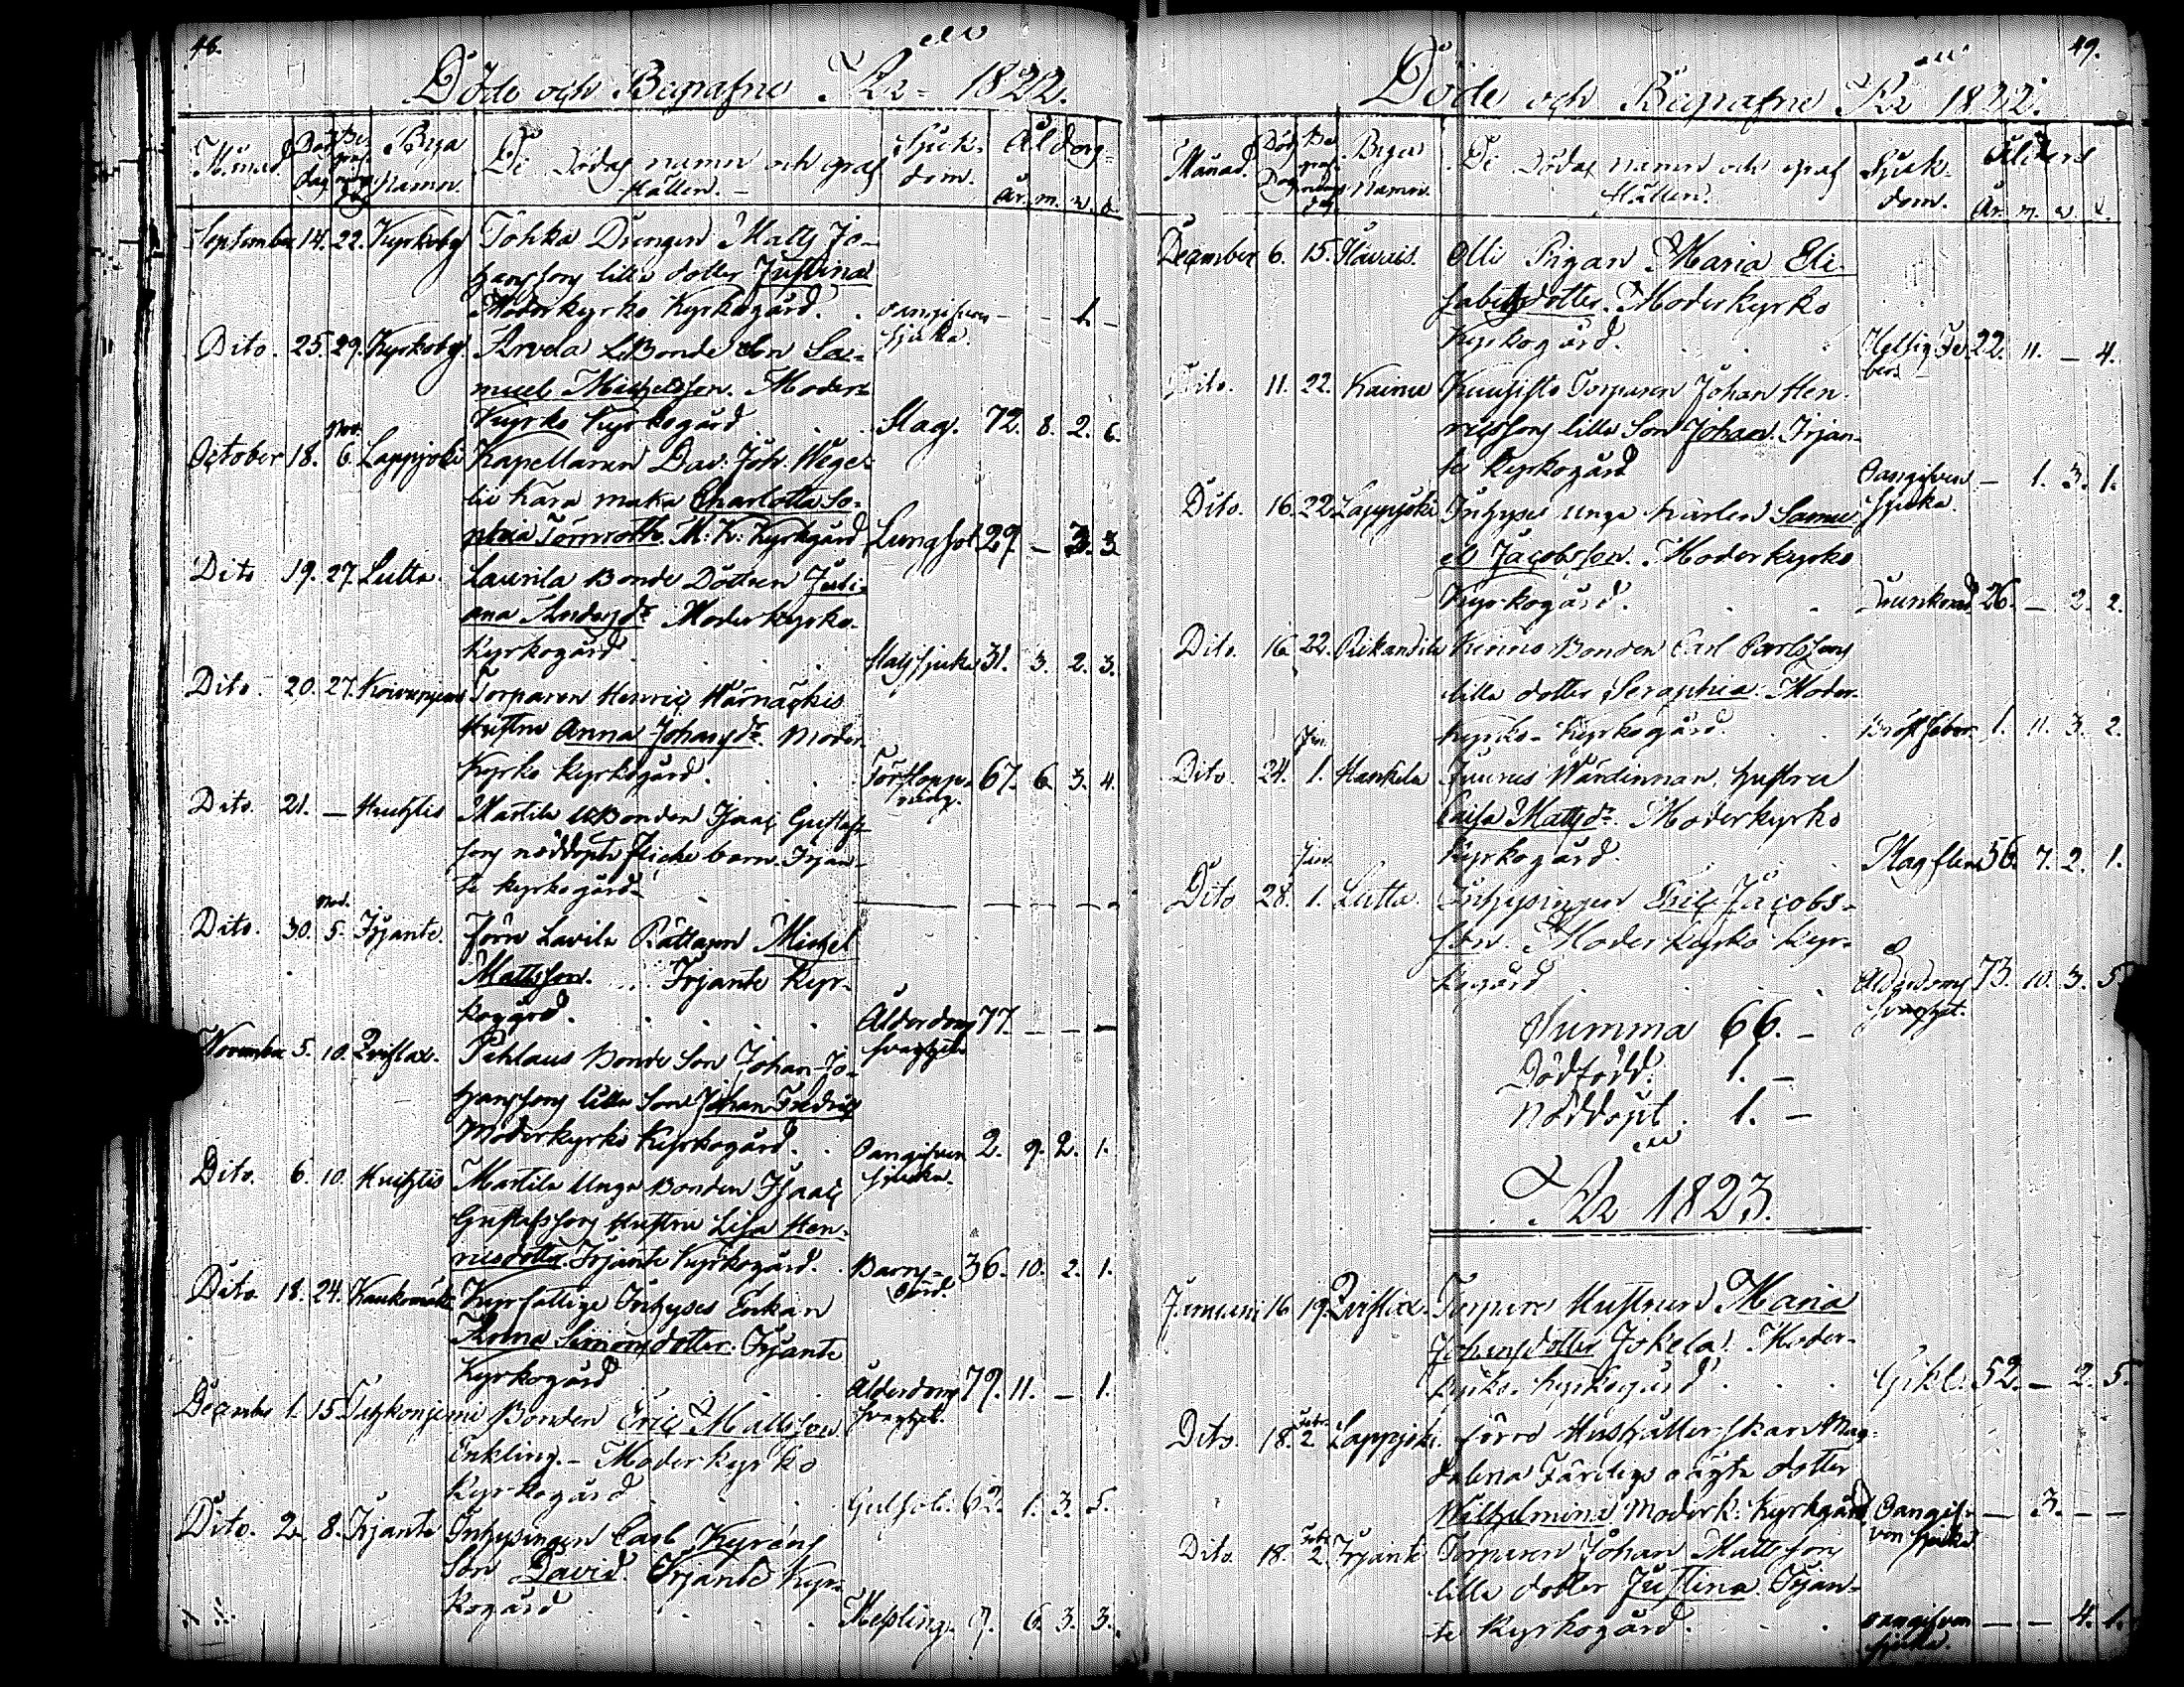 48.
Döde och Begrafne År 1822.
Månad. Döds dag Begrafnings dag Byea namn. De Dödas namn och graf ställen. Sjuk- dom. Ålders år. m. v. d.
September 14. 22. Kyrkoby Tohka Drengen Matts Jo-
hanssons lilla dotter Justina
Moderkyrko Kyrkogård. oangifven sjuka. - - 1. -
Dito. 25. 29. Kyrkoby. Arvela Bonde Son Sa-
muel Michelsson. Moder-
Kyrko Kyrkogård Slag. 72. 8. 2. 6.
October 18. Nov. 6. Lappjoki Kapellanen Dav: Joh. Wege-
lii kära maka Charlotta So-
phia Tömroth. M: K: Kyrkgård Lungsot 29. - 3. 3
Dito 19. 27. Lutta. Laurila Bonde Dottren Juli-
ana Andersdr. Moderkyrko-
Kyrkogård. Halssjuka 31. 3. 2. 3.
Dito. 20. 27. Koivuniemi Torparen Henric Härnäckis
Hustru Anna Johansdr. Moder-
Kyrko Kyrkogård. Förstopp- ning. 67. 6. 3. 4.
Dito. 21. - Huhtis Martila Bonden Isaac Gustafs-
sons nöddopta Flicke barn. Irjan-
te kyrkogård - - - - -
Dito. 30. Nov. 5. Irjante. förre Lavila Rättaren Michel
Mattsson. Irjante Kyr-
kogård. Ålderdoms svaghet 77. - - -
November 5. 10. Qvistlax. Pihlaus Bonde Son Johan Jo-
hanssons lilla Son Johan Fredric
Moderkyrko Kyrkogård. Oangifven sjuka. 2. 9. 2. 1.
Dito. 6. 10. Huhtis Martila Unga Bonden Isaac
Gustafssons Hustru Lisa Hen-
ricsdotter. Irjante Kyrkogård. Barns- börd. 36. 10. 2. 1.
Dito 18. 24. Kaukomäki Kyrfattige Inhyses Enkan
Anna Simonsdotter. Irjante
Kyrkogård Ålderdoms svaghet. 79. 11. - 1.
December 1. 15. Bonden Eric Mattsson
Enkling. - Moderkyrko
Kyrkogård. Gulsot. 62. 1. 3. 5.
Dito. 2. 8. Irjante Inhysingen Carl
Son David. Irjante Kyr-
kogård Messling. 6. 3. 3.
49.
Döde och Begrafne År 1822.
Månad. Döds Dag Begrafnings dag. Byea Namn. De Dödas namn och graf Ställen. Sjuk- dom. Ålders År. m. v. d.
December 6. 15. Olli Pigan Maria Eli-
sabetsdotter. Moderkyrko
Kyrkogård. Hetsig Feber 22. 11. - 4.
Dito. 11. 22. Kainu Kuusisto Torparen Johan Hen-
ricssons lilla Son Johan. Irjan-
te kyrkogård Oangifven sjuka. - 1. 3. 1.
Dito. 16. 22. Lappjoki Inhyses unga karlen Samu-
el Jacobsson. Moderkyrko
Kyrkogård. 26. - 2. 2.
Dito. 16. 22. Rikandila Bonden Carl Carlssons
lilla dotter Seraphia. Moder-
kyrko- Kyrkogård. Bröstfeber 1. 11. 3. 2.
Dito. 24. Jan. 1. Hankela Juurus Wärdinnan, hustru
Caisa Mattsdr. Moderkyrko
Kyrkogård. 56. 7. 2. 1.
Dito 28. Jan. 1. Lutta. Inhysingen Eric Jacobs-
son. Moderkyrko Kyr-
kogård Ålderdoms svaghet. 73. 10. 3. 5.
Summa 66. -
Dödfödd. 1. -
nöddöpt. 1. -
År 1823.
Januarii 16 19. Qvistlax. Torpare Hustrun Maria
Johansdotter Jokela. Moder-
kyrko. kyrkogård. 52. - 2. 5.
Dito. 18. Febr. 2 Lappjoki. förre Hushållerskan Mag-
dalena Färdigs oägta dotter
Wilhelmina Moderk: Kyrkogård. Oangif- ven sjuka - 3. - -
Dito. 18. Febr. 2. Irjante Torparen Johan Mattssons
lilla dotter Justina. Irjan-
te Kyrkogård. oangifven sjuka. - - 4. 1.